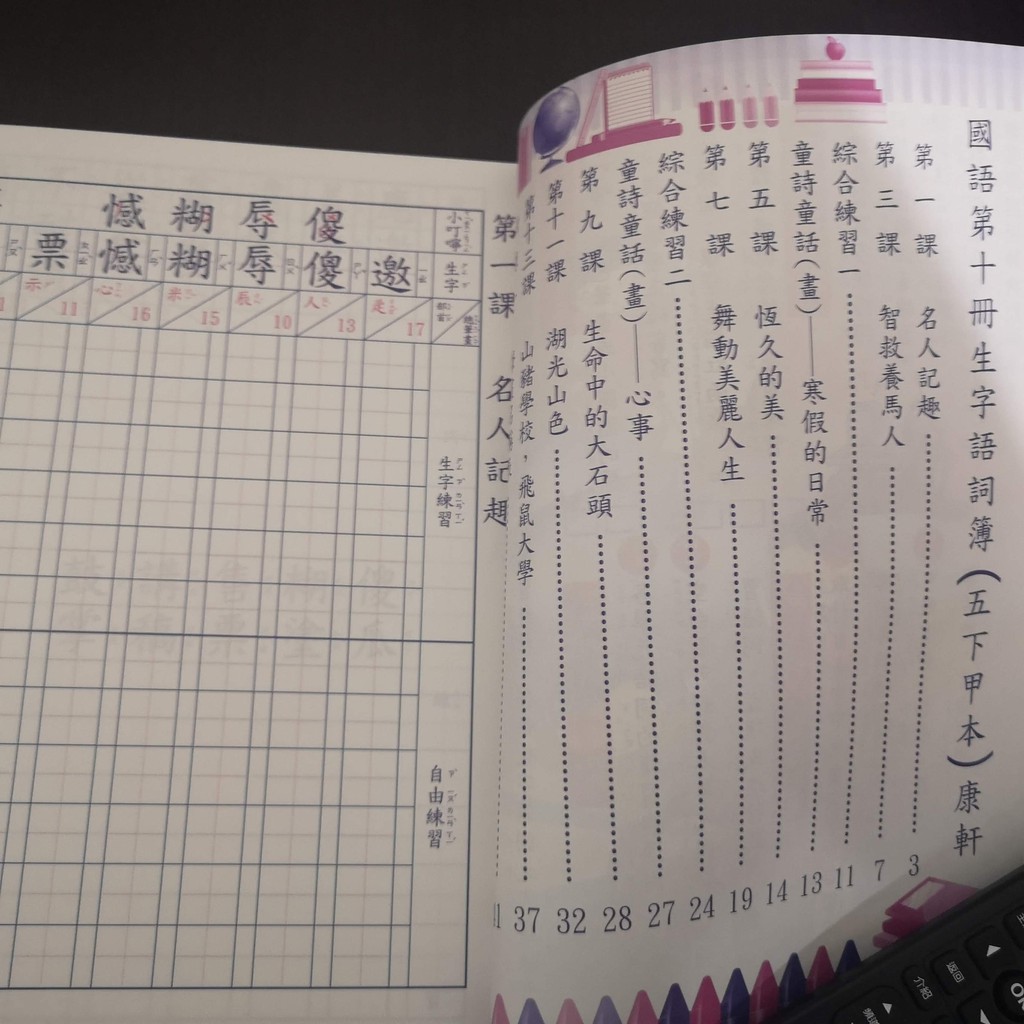 國語第十冊生字語詞簿（五下甲本）康軒
第一課 名人記趣 3
第三課 智救養馬人 7
綜合練習一 11
童詩童話（畫）——寒假的日常 13
第五課 恆久的美 14
第七課 舞動美麗人生 19
綜合練習二 24
童詩童話（畫）——心事 27
第九課 生命中的大石頭 28
第十一課 湖光山色 32
第十三課 山豬學校，飛鼠大學 37
第一課 名人記趣
小叮嚀
生字
部首
總筆畫
生字練習
自由練習
邀 辵 17
傻 傻 人 13
辱 辱 辰 10
糊 糊 米 15
憾 憾 心 16
票 示 11
介紹
返回